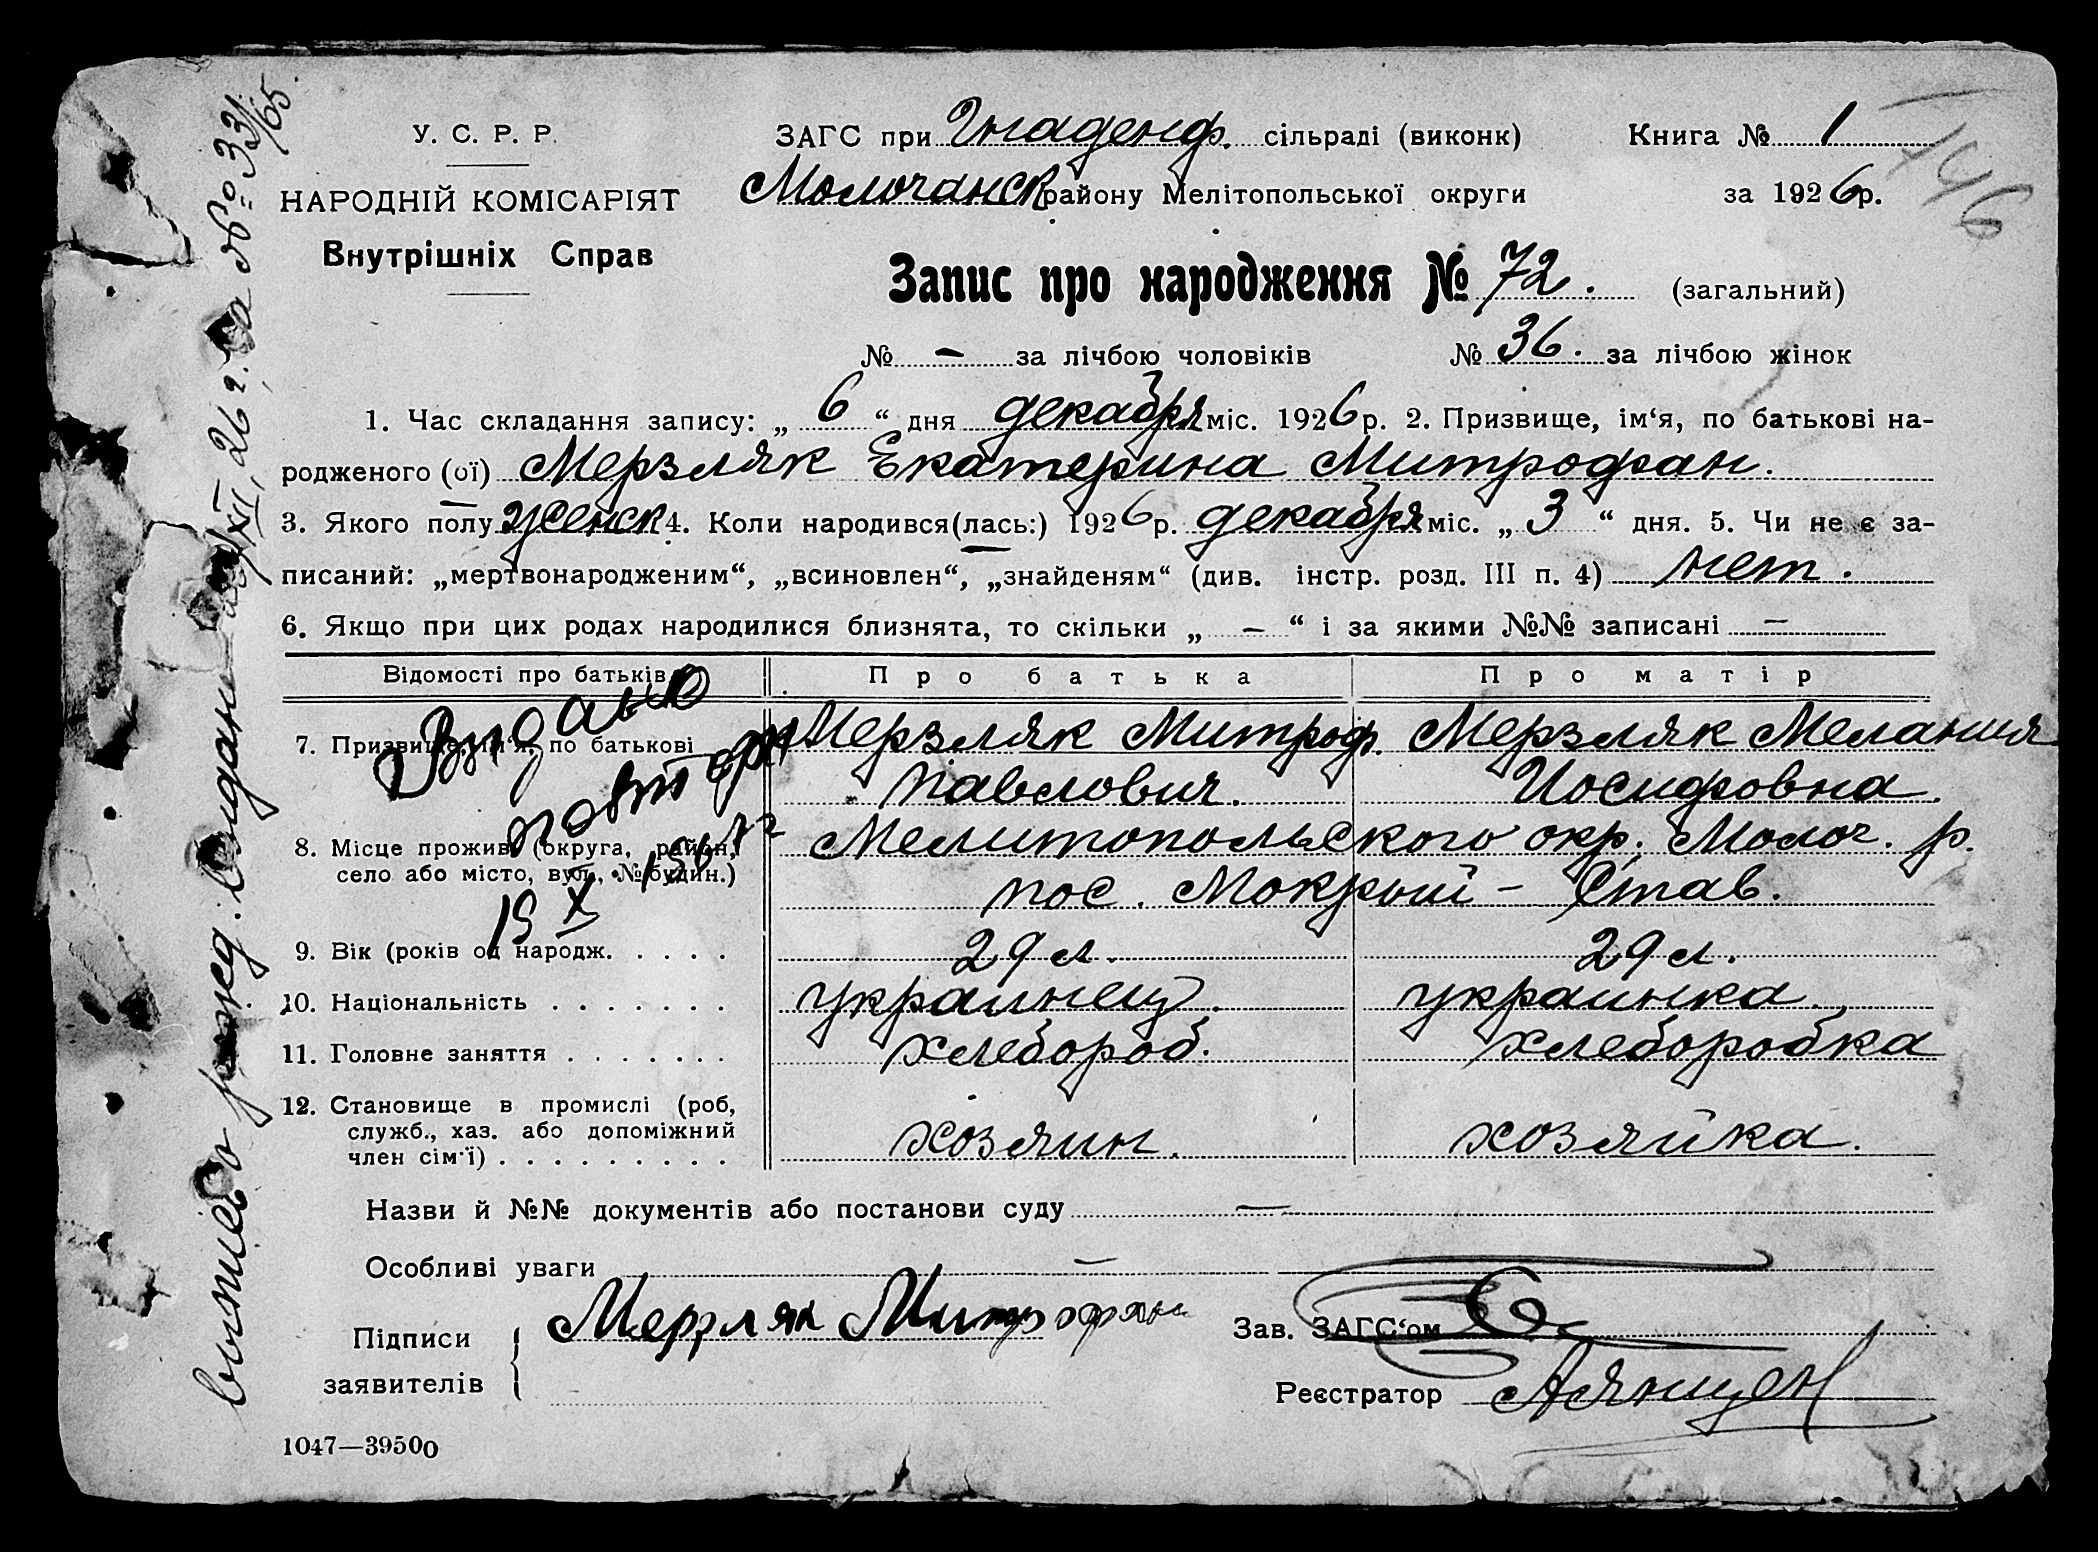 У. С. Р. Р.
НАРОДНІЙ КОМІСАРІЯТ
Внутрішніх Справ
ЗАГС при Гнаденф. сільраді (виконк)
Молочанск району Мелітопольської округи
Книга № 1
за 1926 р.
146
Запис про народження № 72. (загальний)
№ – за лічбою чоловіків № 36. за лічбою жінок
1. Час складання запису: „ 6 “ дня декабря міс. 1926 р. 2. Призвище, ім‘я, по батькові на-
родженого (ої) Мерзляк Екатерина Митрофан.
3. Якого полу женск 4. Коли народився(лась:) 1926 р. декабря міс. „ 3 “ дня. 5. Чи не є за-
писаний: „мертвонародженим“, „всиновлен“, „знайденям“ (див. інстр. розд. III п. 4) нет.
6. Якщо при цих родах народилися близнята, то скільки „ – “ і за якими №№ записані –
Відомості про батьків Про батька Про матір
7. Призвище, ім‘я, по батькові Мерзляк Митроф. Мерзляк Мелания
Павлович. Иосифовна.
8. Місце прожив. (округа, район, Мелитопольского окр. Молоч. р.
село або місто, вул., № будин.) пос. Мокрый – Став.
9. Вік (років од народж. . . . . 29 л. 29 л.
10. Національність . . . . . . . украинец. украинка.
11. Головне заняття . . . . . . . хлебороб. хлеборобка
12. Становище в промислі (роб,
служб., хаз. або допоміжний хозяин. хозяйка.
член сім‘ї) . . . . . . . . .
Видано
повторн
19 X 196
Назви й №№ документів або постанови суду –
Особливі уваги –
Підписи Мерзляк Митрофан
заявителів
Зав. ЗАГС‘ом
Реєстратор
1047—39500
рожд. видани XII, 26 г. за № 331/65.